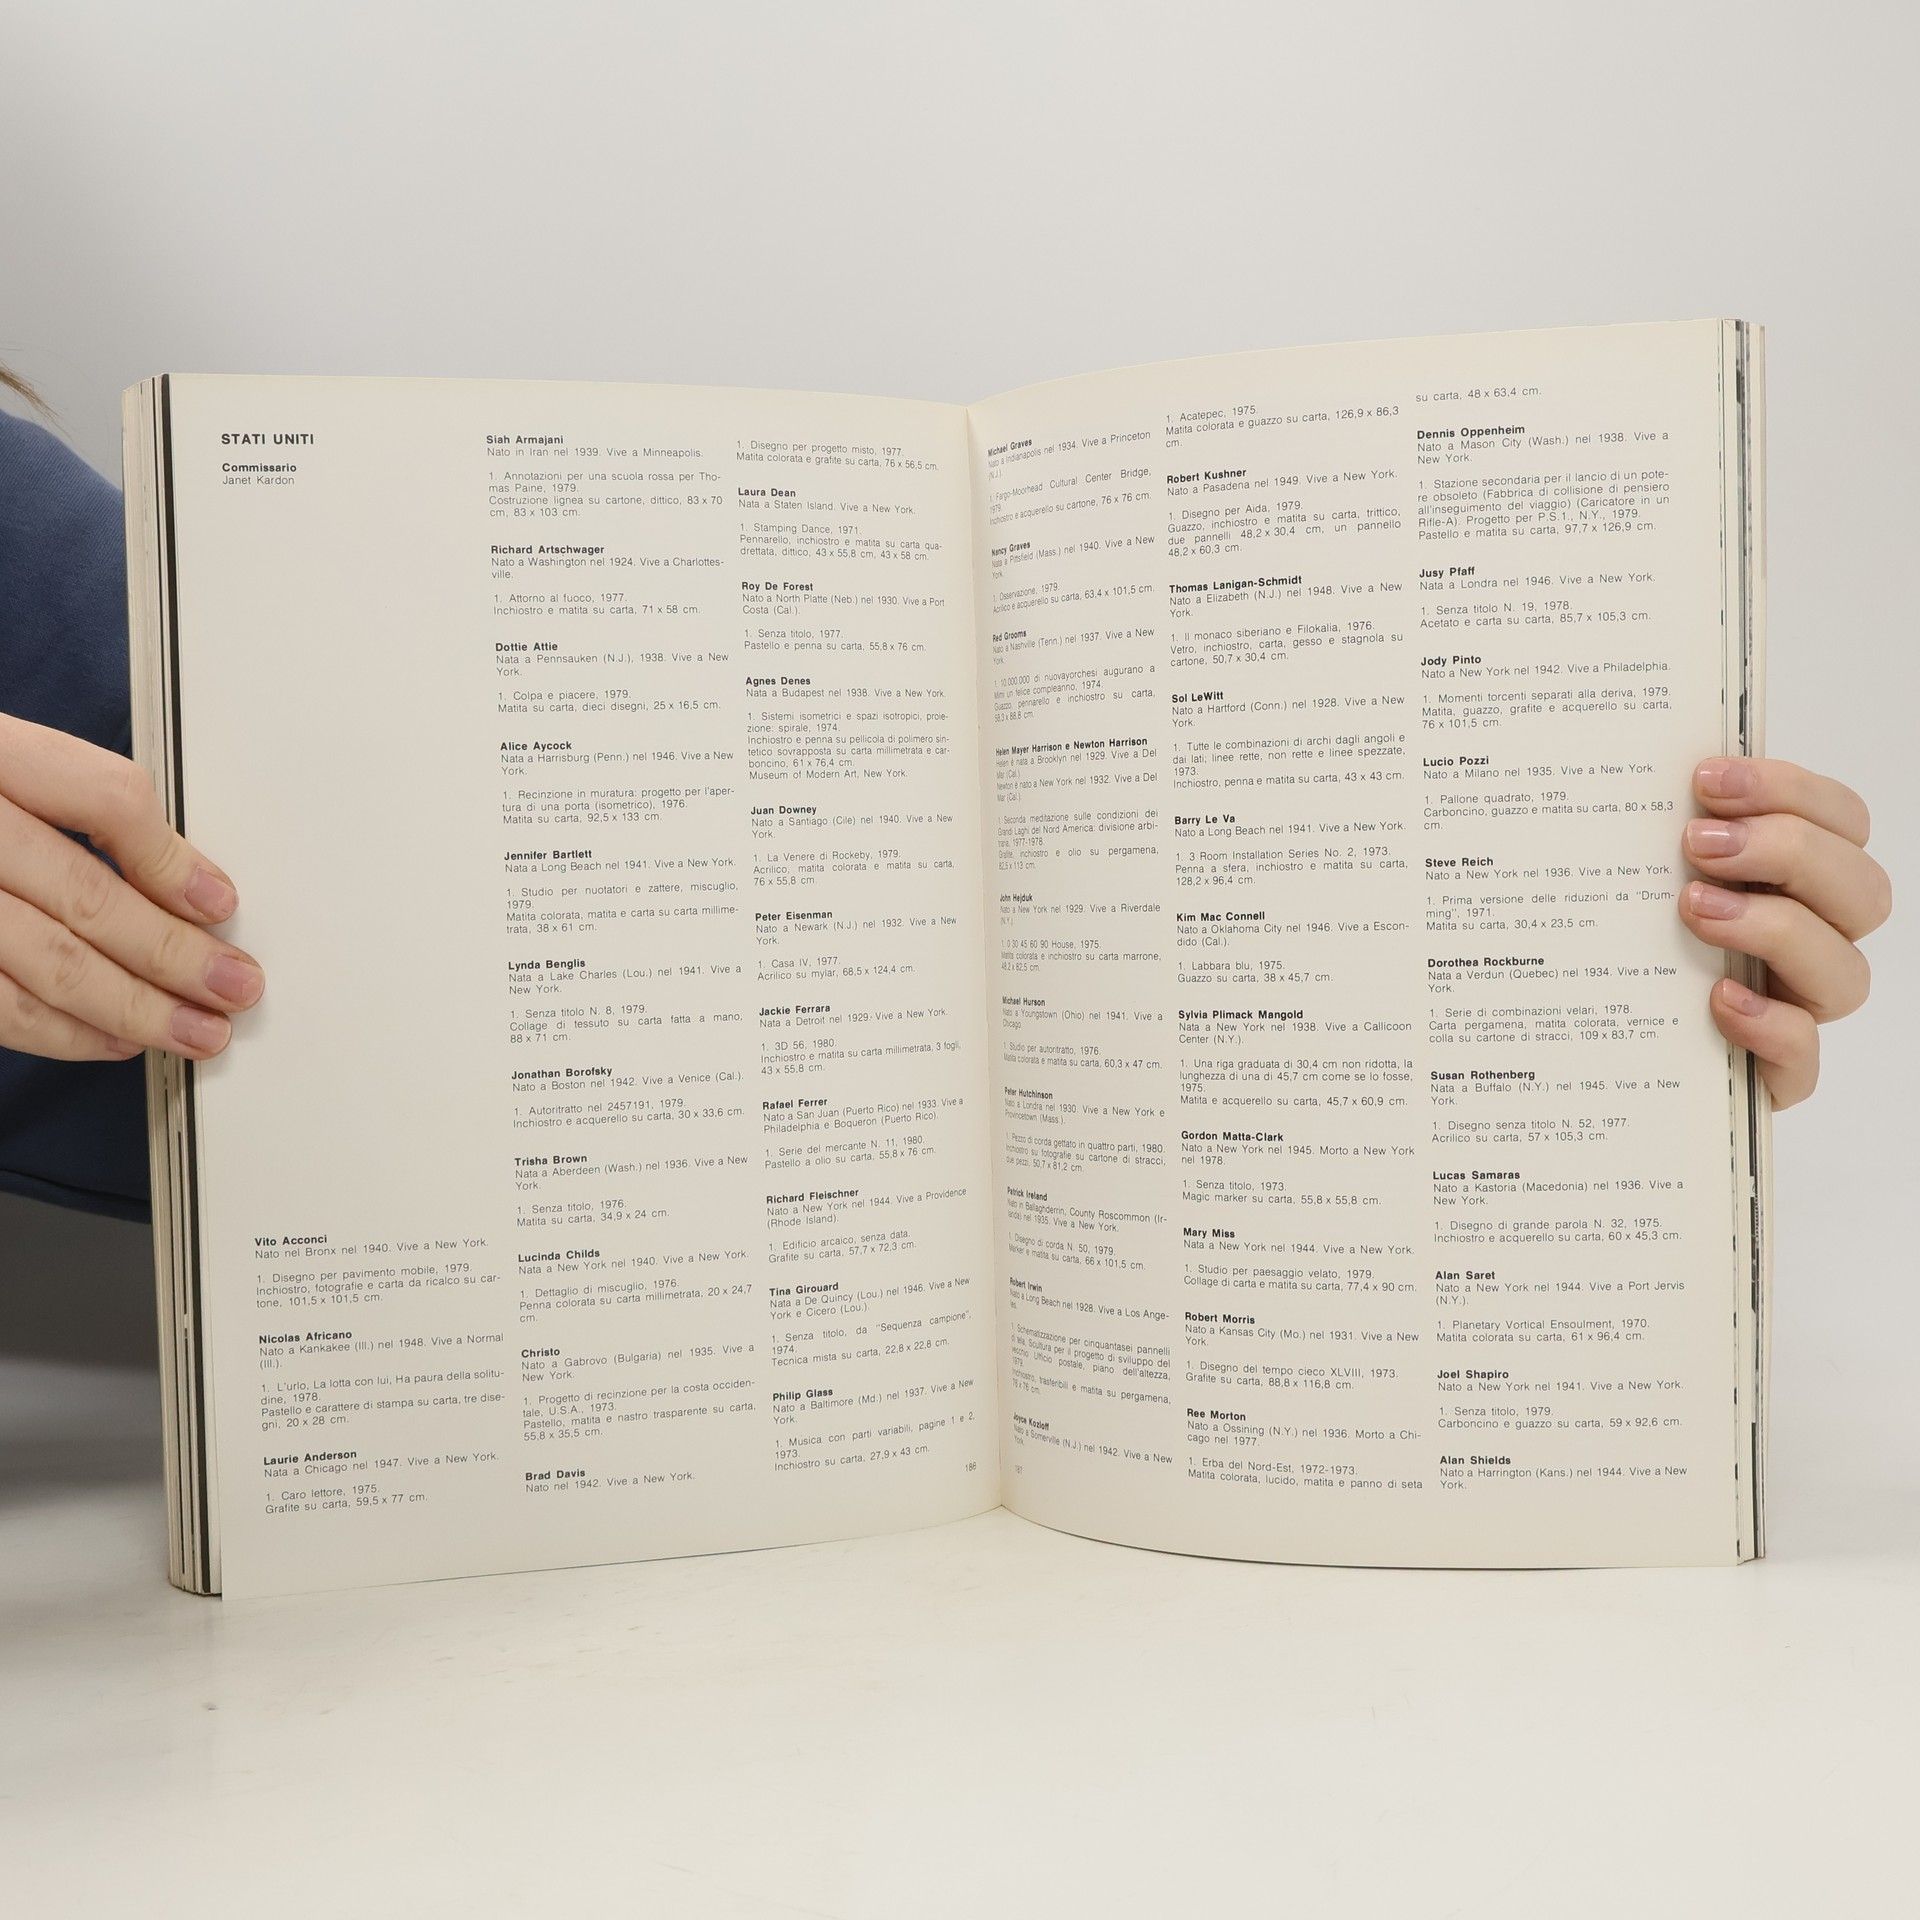 STATI UNITI
Commissario
Janet Kardon
Vito Acconci
Nato nel Bronx nel 1940. Vive a New York.
1. Disegno per pavimento mobile, 1979.
Inchiostro, fotografie e carta da ricalco su car-
tone, 101,5 x 101,5 cm.
Nicolas Africano
Nato a Kankakee (Ill.) nel 1948. Vive a Normal
(Ill.).
1. L'urlo, La lotta con lui, Ha paura della solitu-
dine, 1978.
Pastello e carattere di stampa su carta, tre dise-
gni, 20 x 28 cm.
Laurie Anderson
Nata a Chicago nel 1947. Vive a New York.
1. Caro lettore, 1975.
Grafite su carta, 59,5 x 77 cm.
Siah Armajani
Nato in Iran nel 1939. Vive a Minneapolis.
1. Annotazioni per una scuola rossa per Tho-
mas Paine, 1979.
Costruzione lignea su cartone, dittico, 83 x 70
cm, 83 x 103 cm.
Richard Artschwager
Nato a Washington nel 1924. Vive a Charlottes-
ville.
1. Attorno al fuoco, 1977.
Inchiostro e matita su carta, 71 x 58 cm.
Dottie Attie
Nata a Pennsauken (N.J.), 1938. Vive a New
York.
1. Colpa e piacere, 1979.
Matita su carta, dieci disegni, 25 x 16,5 cm.
Alice Aycock
Nata a Harrisburg (Penn.) nel 1946. Vive a New
York.
1. Recinzione in muratura: progetto per l'aper-
tura di una porta (isometrico), 1976.
Matita su carta, 92,5 x 133 cm.
Jennifer Bartlett
Nata a Long Beach nel 1941. Vive a New York.
1. Studio per nuotatori e zattere, miscuglio,
1979.
Matita colorata, matita e carta su carta millime-
trata, 38 x 61 cm.
Lynda Benglis
Nata a Lake Charles (Lou.) nel 1941. Vive a
New York.
1. Senza titolo N. 8, 1979.
Collage di tessuto su carta fatta a mano,
88 x 71 cm.
Jonathan Borofsky
Nato a Boston nel 1942. Vive a Venice (Cal.).
1. Autoritratto nel 2457191, 1979.
Inchiostro e acquerello su carta, 30 x 33,6 cm.
Trisha Brown
Nata a Aberdeen (Wash.) nel 1936. Vive a New
York.
1. Senza titolo, 1976.
Matita su carta, 34,9 x 24 cm.
Lucinda Childs
Nata a New York nel 1940. Vive a New York.
1. Dettaglio di miscuglio, 1976.
Penna colorata su carta millimetrata, 20 x 24,7
cm.
Christo
Nato a Gabrovo (Bulgaria) nel 1935. Vive a
New York.
1. Progetto di recinzione per la costa occiden-
tale, U.S.A., 1973.
Pastello, matita e nastro trasparente su carta,
55,8 x 35,5 cm.
Brad Davis
Nato nel 1942. Vive a New York.
1. Disegno per progetto misto, 1977.
Matita colorata e grafite su carta, 76 x 56,5 cm.
Laura Dean
Nata a Staten Island. Vive a New York.
1. Stamping Dance, 1971.
Pennarello, inchiostro e matita su carta qua-
drettata, dittico, 43 x 55,8 cm, 43 x 58 cm.
Roy De Forest
Nato a North Platte (Neb.) nel 1930. Vive a Port
Costa (Cal.).
1. Senza titolo, 1977.
Pastello e penna su carta, 55,8 x 76 cm.
Agnes Denes
Nata a Budapest nel 1938. Vive a New York.
1. Sistemi isometrici e spazi isotropici, proie-
zione: spirale, 1974.
Inchiostro e penna su pellicola di polimero sin-
tetico sovrapposta su carta millimetrata e car-
boncino, 61 x 76,4 cm.
Museum of Modern Art, New York.
Juan Downey
Nato a Santiago (Cile) nel 1940. Vive a New
York.
1. La Venere di Rockeby, 1979.
Acrilico, matita colorata e matita su carta,
76 x 55,8 cm.
Peter Eisenman
Nato a Newark (N.J.) nel 1932. Vive a New
York.
1. Casa IV, 1977.
Acrilico su mylar, 68,5 x 124,4 cm.
Jackie Ferrara
Nata a Detroit nel 1929. Vive a New York.
1. 3D 56, 1980.
Inchiostro e matita su carta millimetrata, 3 fogli,
43 x 55,8 cm.
Rafael Ferrer
Nato a San Juan (Puerto Rico) nel 1933. Vive a
Philadelphia e Boqueron (Puerto Rico).
1. Serie del mercante N. 11, 1980.
Pastello a olio su carta, 55,8 x 76 cm.
Richard Fleischner
Nato a New York nel 1944. Vive a Providence
(Rhode Island).
1. Edificio arcaico, senza data.
Grafite su carta, 57,7 x 72,3 cm.
Tina Girouard
Nata a De Quincy (Lou.) nel 1946. Vive a New
York e Cicero (Lou.).
1. Senza titolo, da "Sequenza campione",
1974.
Tecnica mista su carta, 22,8 x 22,8 cm.
Philip Glass
Nato a Baltimore (Md.) nel 1937. Vive a New
York.
1. Musica con parti variabili, pagine 1 e 2,
1973.
Inchiostro su carta, 27,9 x 43 cm.
186
Michael Graves
Nato a Indianapolis nel 1934. Vive a Princeton
(N.J.).
1. Fargo-Moorhead Cultural Center Bridge,
1979.
Inchiostro e acquerello su cartone, 76 x 76 cm.
Nancy Graves
Nata a Pittsfield (Mass.) nel 1940. Vive a New
York.
1. Osservazione, 1979.
Acrilico e acquerello su carta, 63,4 x 101,5 cm.
Red Grooms
Nato a Nashville (Tenn.) nel 1937. Vive a New
York.
1. 10.000.000 di nuovayorchesi augurano a
Mimi un felice compleanno, 1974.
Guazzo, pennarello e inchiostro su carta,
58,3 x 88,8 cm.
Helen Mayer Harrison e Newton Harrison
Helen è nata a Brooklyn nel 1929. Vive a Del
Mar (Cal.).
Newton è nato a New York nel 1932. Vive a Del
Mar (Cal.).
1. Seconda meditazione sulle condizioni dei
Grandi Laghi del Nord America: divisione arbi-
traria, 1977-1978.
Grafite, inchiostro e olio su pergamena,
82,5 x 113 cm.
John Hejduk
Nato a New York nel 1929. Vive a Riverdale
(N.Y.).
1. 0 30 45 60 90 House, 1975.
Matita colorata e inchiostro su carta marrone,
48,2 x 82,5 cm.
Michael Hurson
Nato a Youngstown (Ohio) nel 1941. Vive a
Chicago
1. Studio per autoritratto, 1976.
Matita colorata e matita su carta, 60,3 x 47 cm.
Peter Hutchinson
Nato a Londra nel 1930. Vive a New York e
Provincetown (Mass.).
1. Pezzo di corda gettato in quattro parti, 1980.
Inchiostro su fotografie su cartone di stracci,
due pezzi, 50,7 x 81,2 cm.
Patrick Ireland
Nato in Ballaghderrin, County Roscommon (Ir-
landa) nel 1935. Vive a New York.
1. Disegno di corda N. 50, 1979.
Marker e matita su carta, 66 x 101,5 cm.
Robert Irwin
Nato a Long Beach nel 1928. Vive a Los Ange-
les.
1. Schematizzazione per cinquantasei pannelli
di tela, Scultura per il progetto di sviluppo del
vecchio Ufficio postale, piano dell'altezza,
1979.
Inchiostro, trasferibili e matita su pergamena,
76 x 76 cm.
Joyce Kozloff
Nata a Somerville (N.J.) nel 1942. Vive a New
York.
187
1. Acatepec, 1975.
Matita colorata e guazzo su carta, 126,9 x 86,3
cm.
Robert Kushner
Nato a Pasadena nel 1949. Vive a New York.
1. Disegno per Aida, 1979.
Guazzo, inchiostro e matita su carta, trittico,
due pannelli 48,2 x 30,4 cm, un pannello
48,2 x 60,3 cm.
Thomas Lanigan-Schmidt
Nato a Elizabeth (N.J.) nel 1948. Vive a New
York.
1. Il monaco siberiano e Filokalia, 1976.
Vetro, inchiostro, carta, gesso e stagnola su
cartone, 50,7 x 30,4 cm.
Sol LeWitt
Nato a Hartford (Conn.) nel 1928. Vive a New
York.
1. Tutte le combinazioni di archi dagli angoli e
dai lati; linee rette, non rette e linee spezzate,
1973.
Inchiostro, penna e matita su carta, 43 x 43 cm.
Barry Le Va
Nato a Long Beach nel 1941. Vive a New York.
1. 3 Room Installation Series No. 2, 1973.
Penna a sfera, inchiostro e matita su carta,
128,2 x 96,4 cm.
Kim Mac Connell
Nato a Oklahoma City nel 1946. Vive a Escon-
dido (Cal.).
1. Labbara blu, 1975.
Guazzo su carta, 38 x 45,7 cm.
Sylvia Plimack Mangold
Nata a New York nel 1938. Vive a Callicoon
Center (N.Y.).
1. Una riga graduata di 30,4 cm non ridotta, la
lunghezza di una di 45,7 cm come se lo fosse,
1975.
Matita e acquerello su carta, 45,7 x 60,9 cm.
Gordon Matta-Clark
Nato a New York nel 1945. Morto a New York
nel 1978.
1. Senza titolo, 1973.
Magic marker su carta, 55,8 x 55,8 cm.
Mary Miss
Nata a New York nel 1944. Vive a New York.
1. Studio per paesaggio velato, 1979.
Collage di carta e matita su carta, 77,4 x 90 cm.
Robert Morris
Nato a Kansas City (Mo.) nel 1931. Vive a New
York.
1. Disegno del tempo cieco XLVIII, 1973.
Grafite su carta, 88,8 x 116,8 cm.
Ree Morton
Nato a Ossining (N.Y.) nel 1936. Morto a Chi-
cago nel 1977.
1. Erba del Nord-Est, 1972-1973.
Matita colorata, lucido, matita e panno di seta
su carta, 48 x 63,4 cm.
Dennis Oppenheim
Nato a Mason City (Wash.) nel 1938. Vive a
New York.
1. Stazione secondaria per il lancio di un pote-
re obsoleto (Fabbrica di collisione di pensiero
all'inseguimento del viaggio) (Caricatore in un
Rifle-A). Progetto per P.S.1., N.Y., 1979.
Pastello e matita su carta, 97,7 x 126,9 cm.
Jusy Pfaff
Nata a Londra nel 1946. Vive a New York.
1. Senza titolo N. 19, 1978.
Acetato e carta su carta, 85,7 x 105,3 cm.
Jody Pinto
Nato a New York nel 1942. Vive a Philadelphia.
1. Momenti torcenti separati alla deriva, 1979.
Matita, guazzo, grafite e acquerello su carta,
76 x 101,5 cm.
Lucio Pozzi
Nato a Milano nel 1935. Vive a New York.
1. Pallone quadrato, 1979.
Carboncino, guazzo e matita su carta, 80 x 58,3
cm.
Steve Reich
Nato a New York nel 1936. Vive a New York.
1. Prima versione delle riduzioni da "Drum-
ming", 1971.
Matita su carta, 30,4 x 23,5 cm.
Dorothea Rockburne
Nata a Verdun (Quebec) nel 1934. Vive a New
York.
1. Serie di combinazioni velari, 1978.
Carta pergamena, matita colorata, vernice e
colla su cartone di stracci, 109 x 83,7 cm.
Susan Rothenberg
Nata a Buffalo (N.Y.) nel 1945. Vive a New
York.
1. Disegno senza titolo N. 52, 1977.
Acrilico su carta, 57 x 105,3 cm.
Lucas Samaras
Nato a Kastoria (Macedonia) nel 1936. Vive a
New York.
1. Disegno di grande parola N. 32, 1975.
Inchiostro e acquerello su carta, 60 x 45,3 cm.
Alan Saret
Nato a New York nel 1944. Vive a Port Jervis
(N.Y.).
1. Planetary Vortical Ensoulment, 1970.
Matita colorata su carta, 61 x 96,4 cm.
Joel Shapiro
Nato a New York nel 1941. Vive a New York.
1. Senza titolo, 1979.
Carboncino e guazzo su carta, 59 x 92,6 cm.
Alan Shields
Nato a Harrington (Kans.) nel 1944. Vive a New
York.